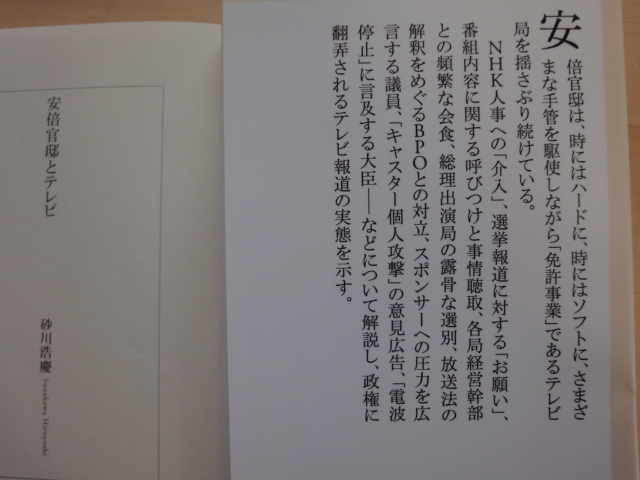 安倍官邸は、時にはハードに、時にはソフトに、さまざ
まな手管を駆使しながら「免許事業」であるテレビ
局を揺さぶり続けている。
NHK人事への「介入」、選挙報道に対する「お願い」、
番組内容に関する呼びつけと事情聴取、各局経営幹部
との頻繁な会食、総理出演局の露骨な選別、放送法の
解釈をめぐるBPOとの対立、スポンサーへの圧力を広
言する議員、「キャスター個人攻撃」の意見広告、「電波
停止」に言及する大臣――などについて解説し、政権に
翻弄されるテレビ報道の実態を示す。
安倍官邸とテレビ
砂川浩慶
Sunakawa Hiroyoshi